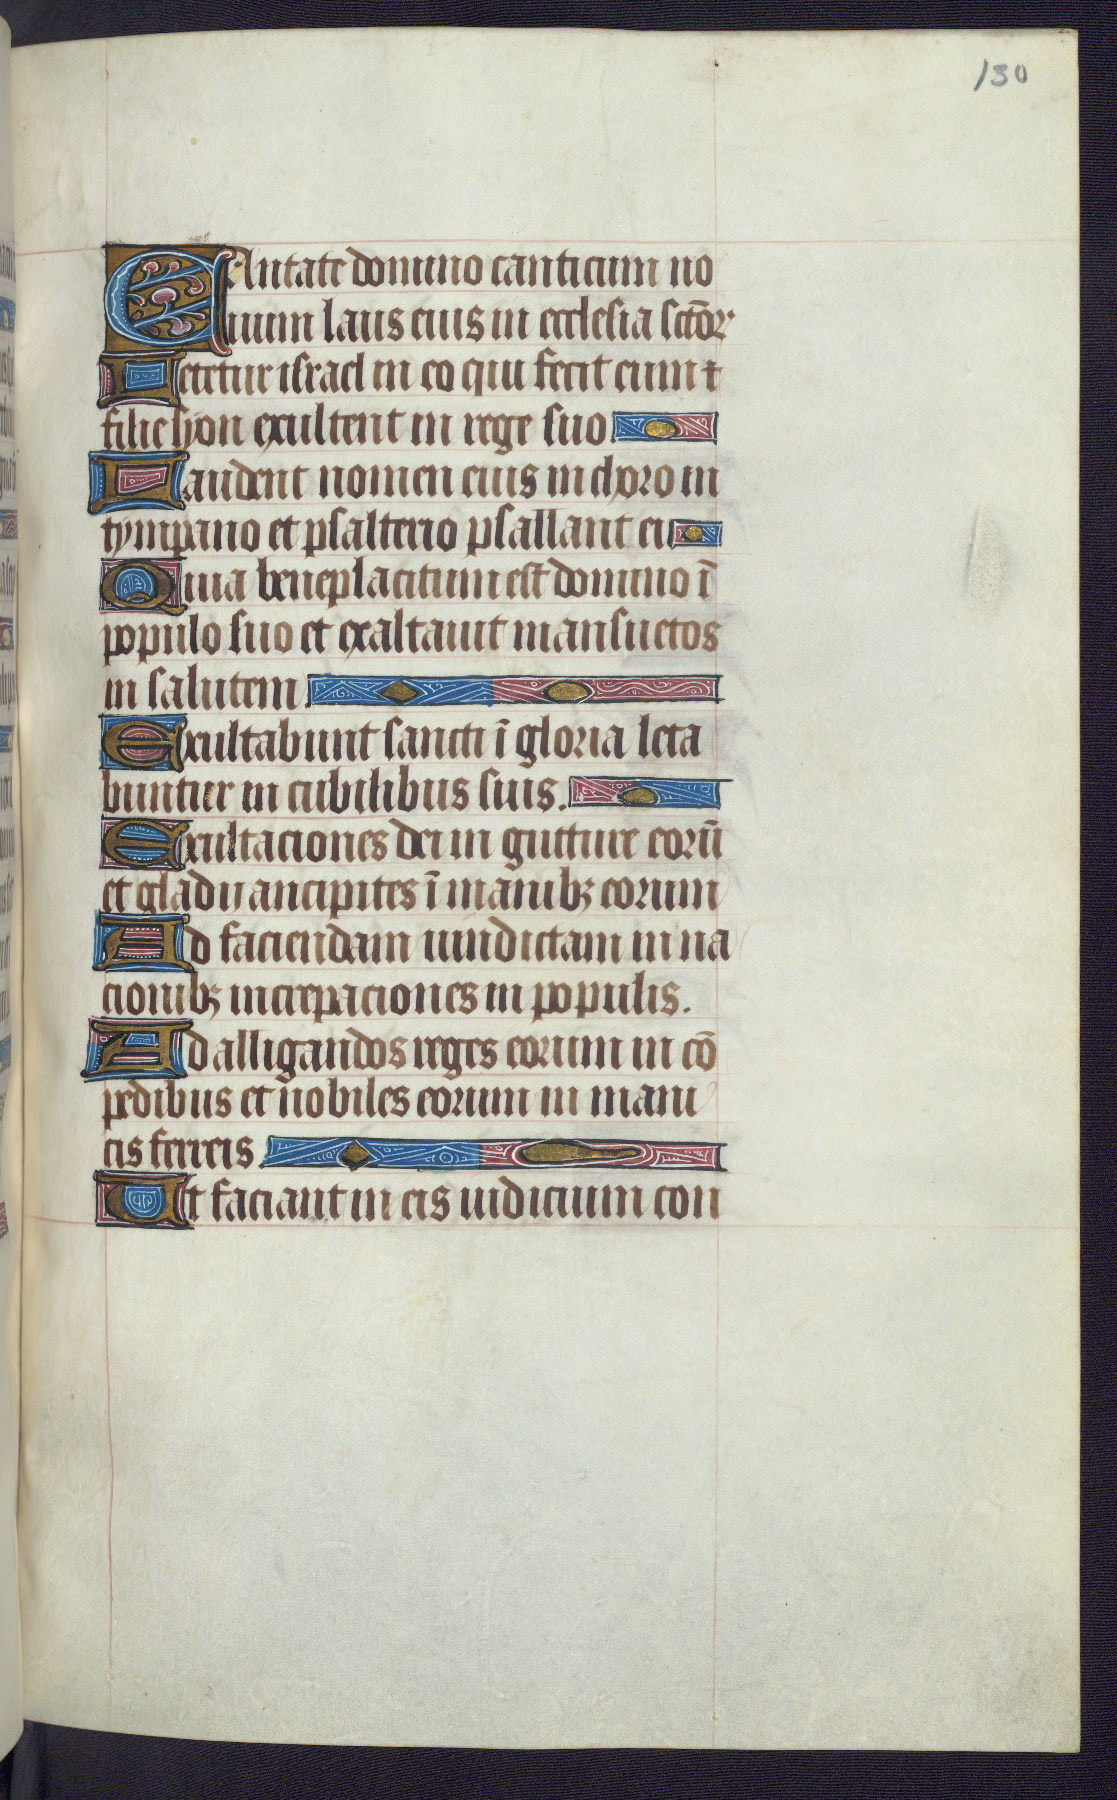 130
CAntate domino canticum no
uum laus eius in ecclesia sctõꝝ
Letetur israel in eo qui fecit eum ⁊
filie syon exultent in rege suo
Laudent nomen eius in choro in
tympano et psalterio psallant ei
Quia beneplacitum est domino ĩ
populo suo et exaltauit mansuetos
in salutem.
Exultabunt sancti ĩ gloria leta
buntur in cubilibus suis.
Exultaciones dei in gutture eorũ
et gladij ancipites ĩ manibꝫ eorum
Ad faciendam uindictam in na
cionibꝫ increpaciones in populis.
Ad alligandos reges eorum in cõ
pedibus et nobiles eorum in mani
cis ferreis
Ut faciant in eis iudicium con